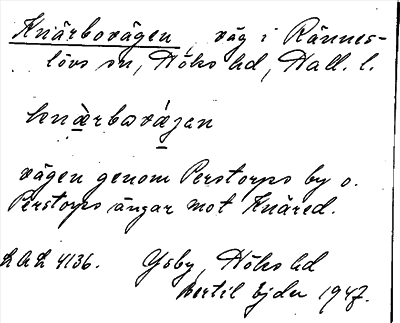 Knärbovägen, väg i Rännes-
lövs sn, Höks hd, Hall. l.
knæ̀rbovǽgen
vägen genom Perstorps by o.
Perstorps ängar mot Knäred.
LAL 4136. Ysby, Höks hd
Bertil Ejder 1947.